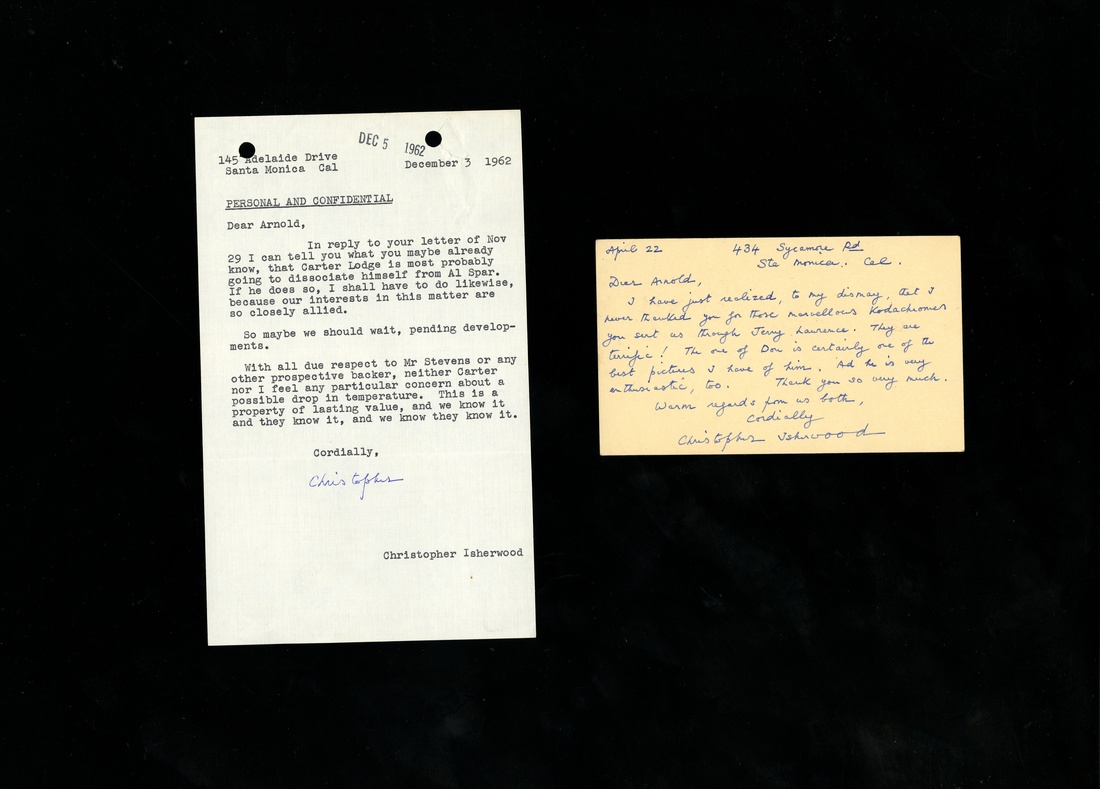 DEC 5 1962
145 Adelaide Drive
Santa Monica Cal
December 3 1962
PERSONAL AND CONFIDENTIAL
Dear Arnold,
In reply to your letter of Nov
29 I can tell you what you maybe already
know, that Carter Lodge is most probably
going to dissociate himself from Al Spar.
If he does so, I shall have to do likewise,
because our interests in this matter are
so closely allied.
So maybe we should wait, pending develop-
ments.
With all due respect to Mr Stevens or any
other prospective backer, neither Carter
nor I feel any particular concern about a
possible drop in temperature. This is a
property of lasting value, and we know it
and they know it, and we know they know it.
Cordially,
Christopher
Christopher Isherwood
April 22
434 Sycamore Rd
Sta Monica. Cal.
Dear Arnold,
I have just realized, to my dismay, that I
never thanked you for those marvellous Kodachromes
you sent us through Jerry Lawrence. They are
terrific! The one of Don is certainly one of the
best pictures I have of him. Ad he is very
enthusiastic, too. Thank you so very much.
Warm regards from us both,
Cordially
Christopher Isherwood